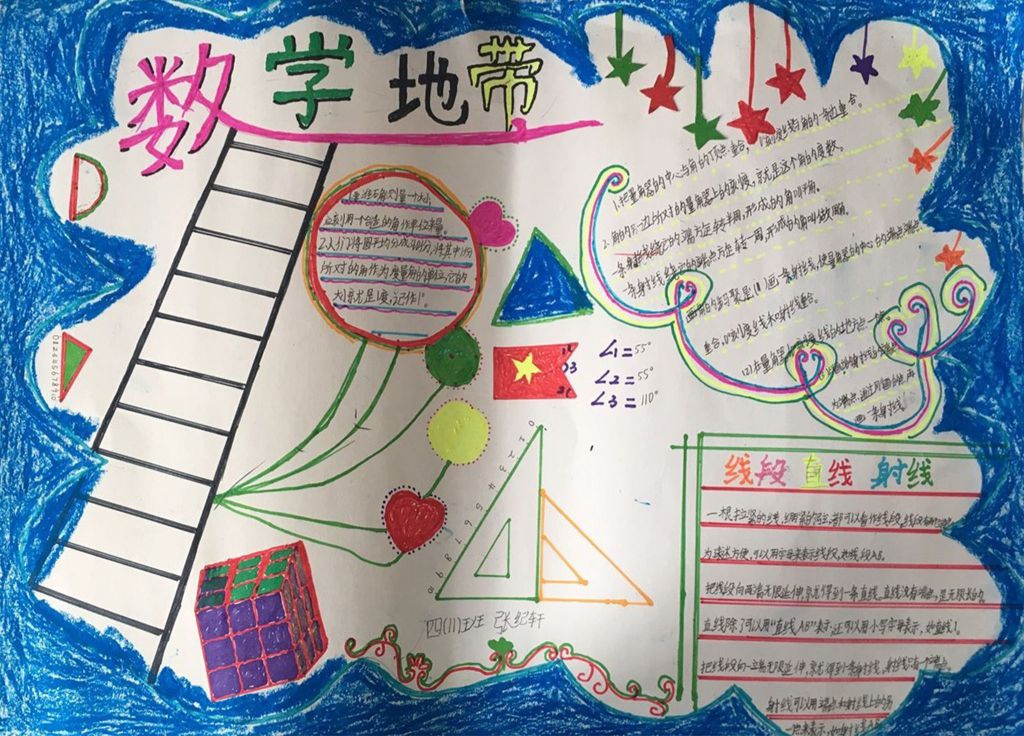 数学地带
1.要准确测量一个大小,
应利用一个合适的角作单位来量。
2.人们将圆平均分成360份,将其中1份
所对的角作为度量角的单位,它的
大小就是1度,记作1°。
1.把量角器的中心与角的顶点重合,0°刻度线与角的一条边重合。
2.角的另一边所对的量器上的刻度,就是这个角的度数。
一条射线绕它的端点旋转半周,形成的角叫平角。
一条射线绕它的端点旋转一周,形成的角叫做周角。
重合,0°刻度线和射线重合。
画一条射线
∠1=55°
∠2=55°
∠3=110°
线段 直线 射线
一根拉紧的线,绷紧的弓弦,都可以看作线段,线段有两个端点
为表述方便,可以用字母来表示线段,如线段AB。
把线段向两端无限延伸,就得到一条直线,直线没有端点,是无限长的
直线除了可以用"直线AB"表示,还可以用小写字母表示,如直线l。
把线段向一端无限延伸,就得到一条射线,射线只有一个端点。
射线可以用端点和射线上的另
一点来表示,如射线
四(1)班 张纪轩